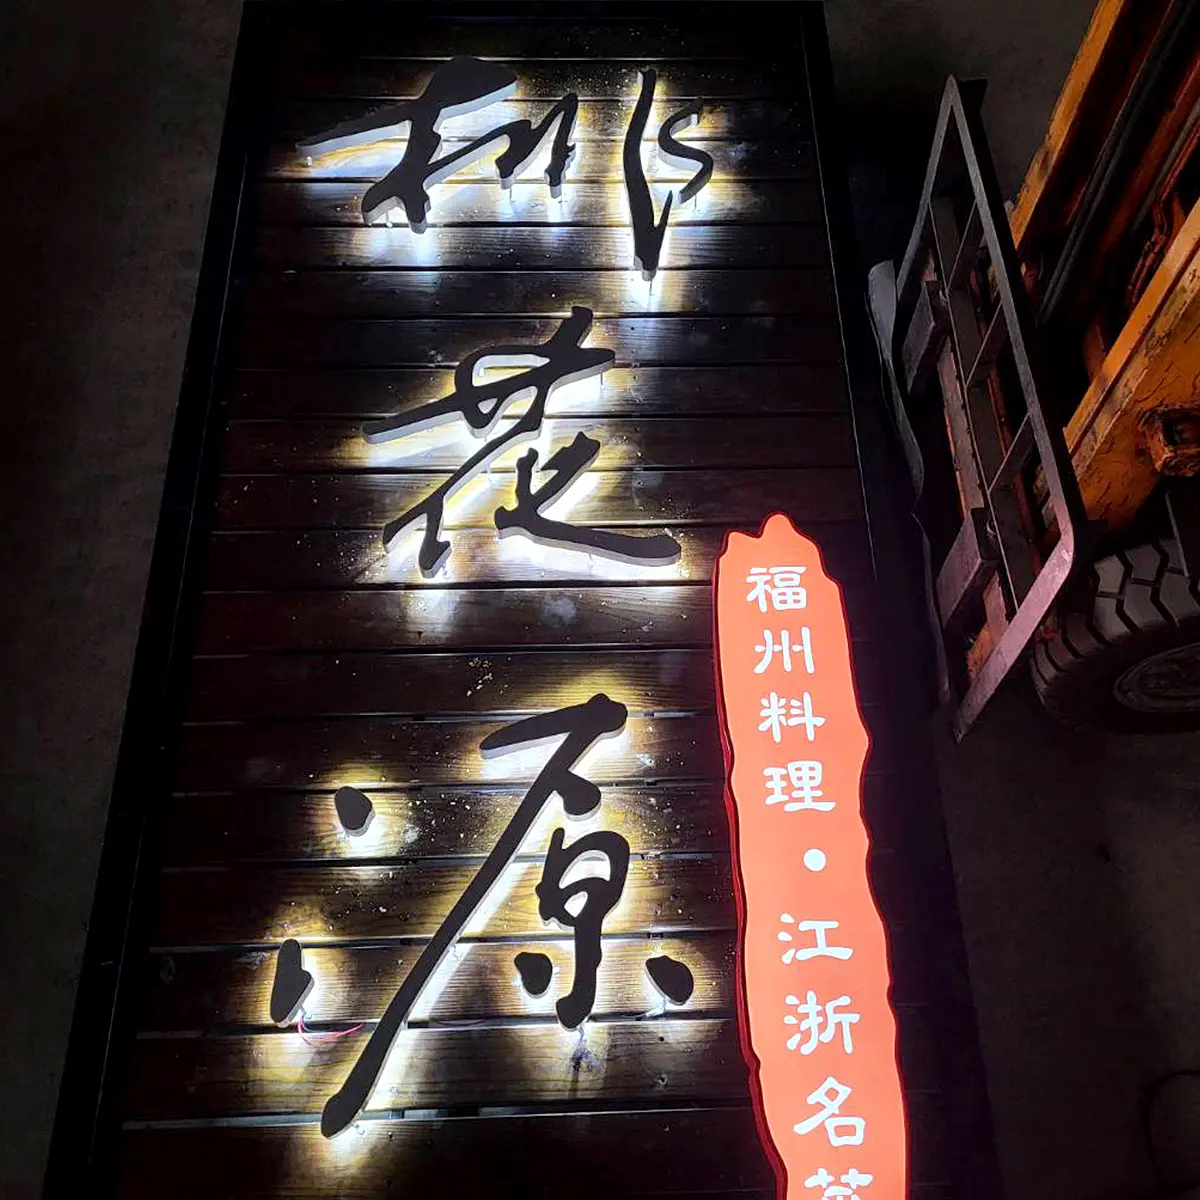 桃花源
福州料理·江浙名菜